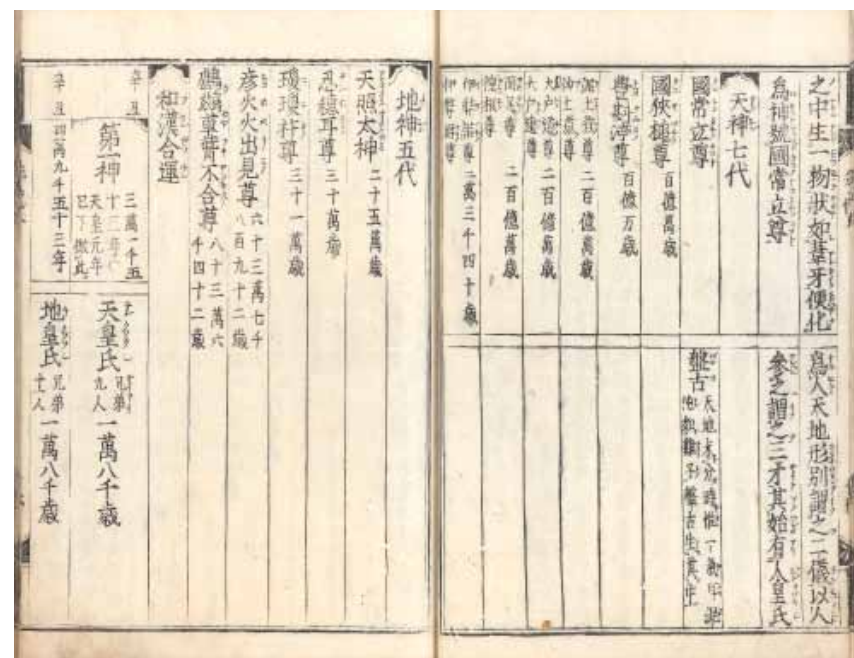 之中生一物狀如葦牙便化
爲神號國常立尊
天神七代
國常立尊
國狹槌尊 百億萬歲
豊斟渟尊 百億万歲
泥土煑尊
沙土煑尊 二百億萬歲
大戸道尊
大戸邊尊 二百億萬歲
面足尊
惶根尊 二百億萬歲
伊弉諾尊
伊弉冊尊 二萬三千四十歲
爲人天地形別謂之二儀以人
參之謂之三才其始有人皇氏
盤古
地神五代
天照太神 二十五萬歲
忍穗耳尊 三十萬歲
瓊瓊杵尊 三十一萬歲
彦火火出見尊 六十三萬七千
八百九十二歲
鸕鷀草葺不合尊 八十三萬六
千四十二歲
和漢合運
辛丑
第一神 三萬一千五
十三年
天皇元年
已下倣此
辛丑
四萬九千五十三年
天皇氏 兄弟
九人 一萬八千歲
地皇氏 兄弟
十人 一萬八千歲